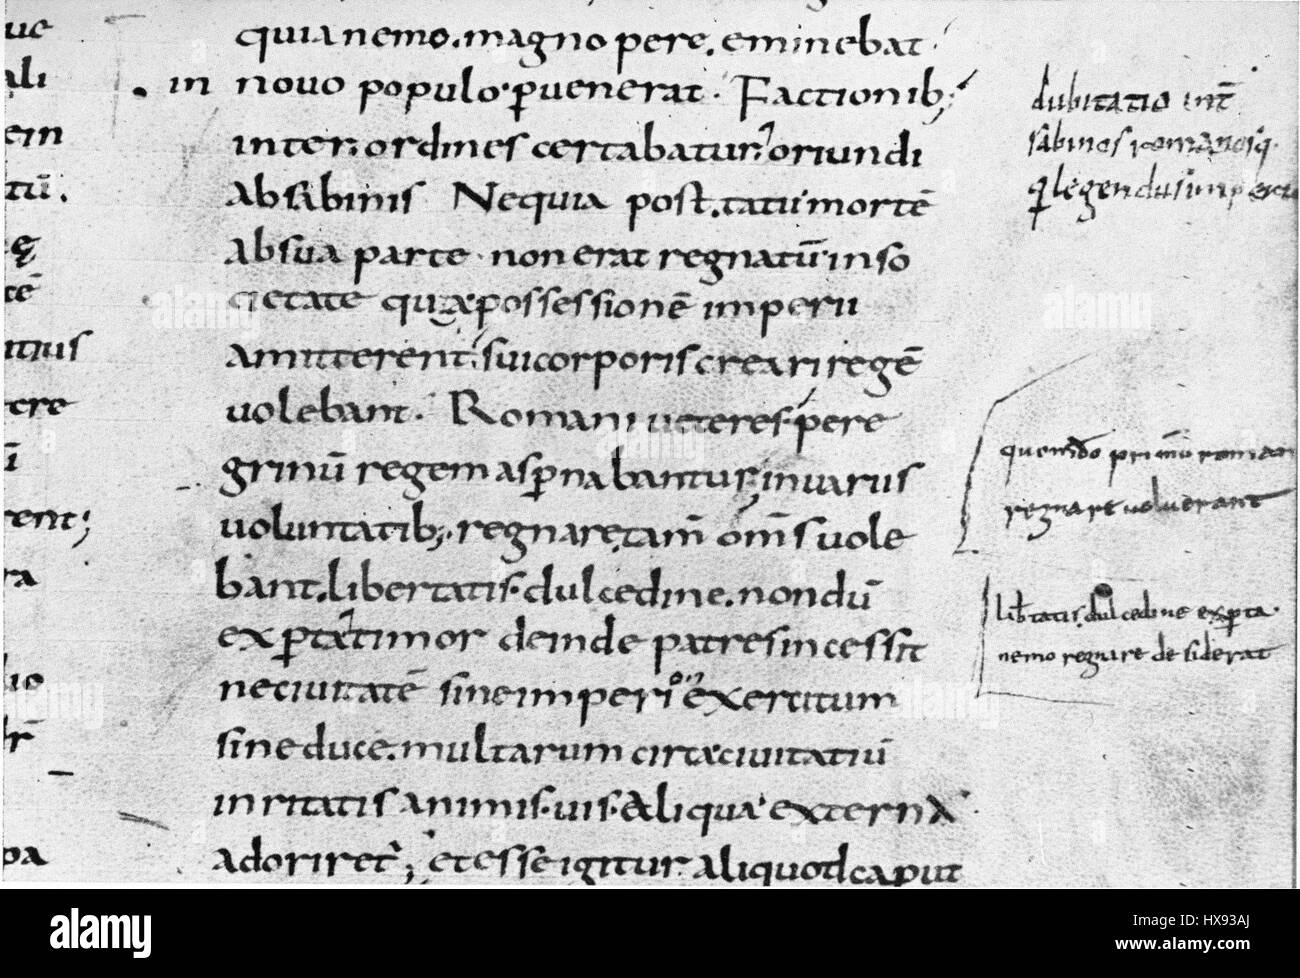 ue
ali
ein
tū.
ę
tē
itius
ere
ū
rent;
ra
lio
r̄
pa
quia nemo. magno pere. eminebat
in novo populo. ꝑvenerat. Factionib;
inter ordines certabatur oriundi
Absabinis Nequia post. tatii mortē
Absua parte non erat regnatū inso
cietate qua possessionē imperii
Amitterent sui corporis creari regē
volebant. Romani veteres pere
grinū regem aspnabantur, invariis
voluntatib; regnare tam̄ om̄s vole
bant. libertatis. dulcedine. nondū
exꝑta timor deinde patres incessit
ne civitatē sine imperio exercitum
sine duce. multarum circa civitatiū
inritatis animis. vis. Aliqua externa
adoriret; et esse igitur aliquod caput
dubitatio int̄
sabinos romanosq.
ꝗ legendus
quemdo primū roman
regnare voluerant
lib̄tatis. dulcedine exꝑta.
nemo regnare desiderat
alamy
HX93AJ
www.alamy.com